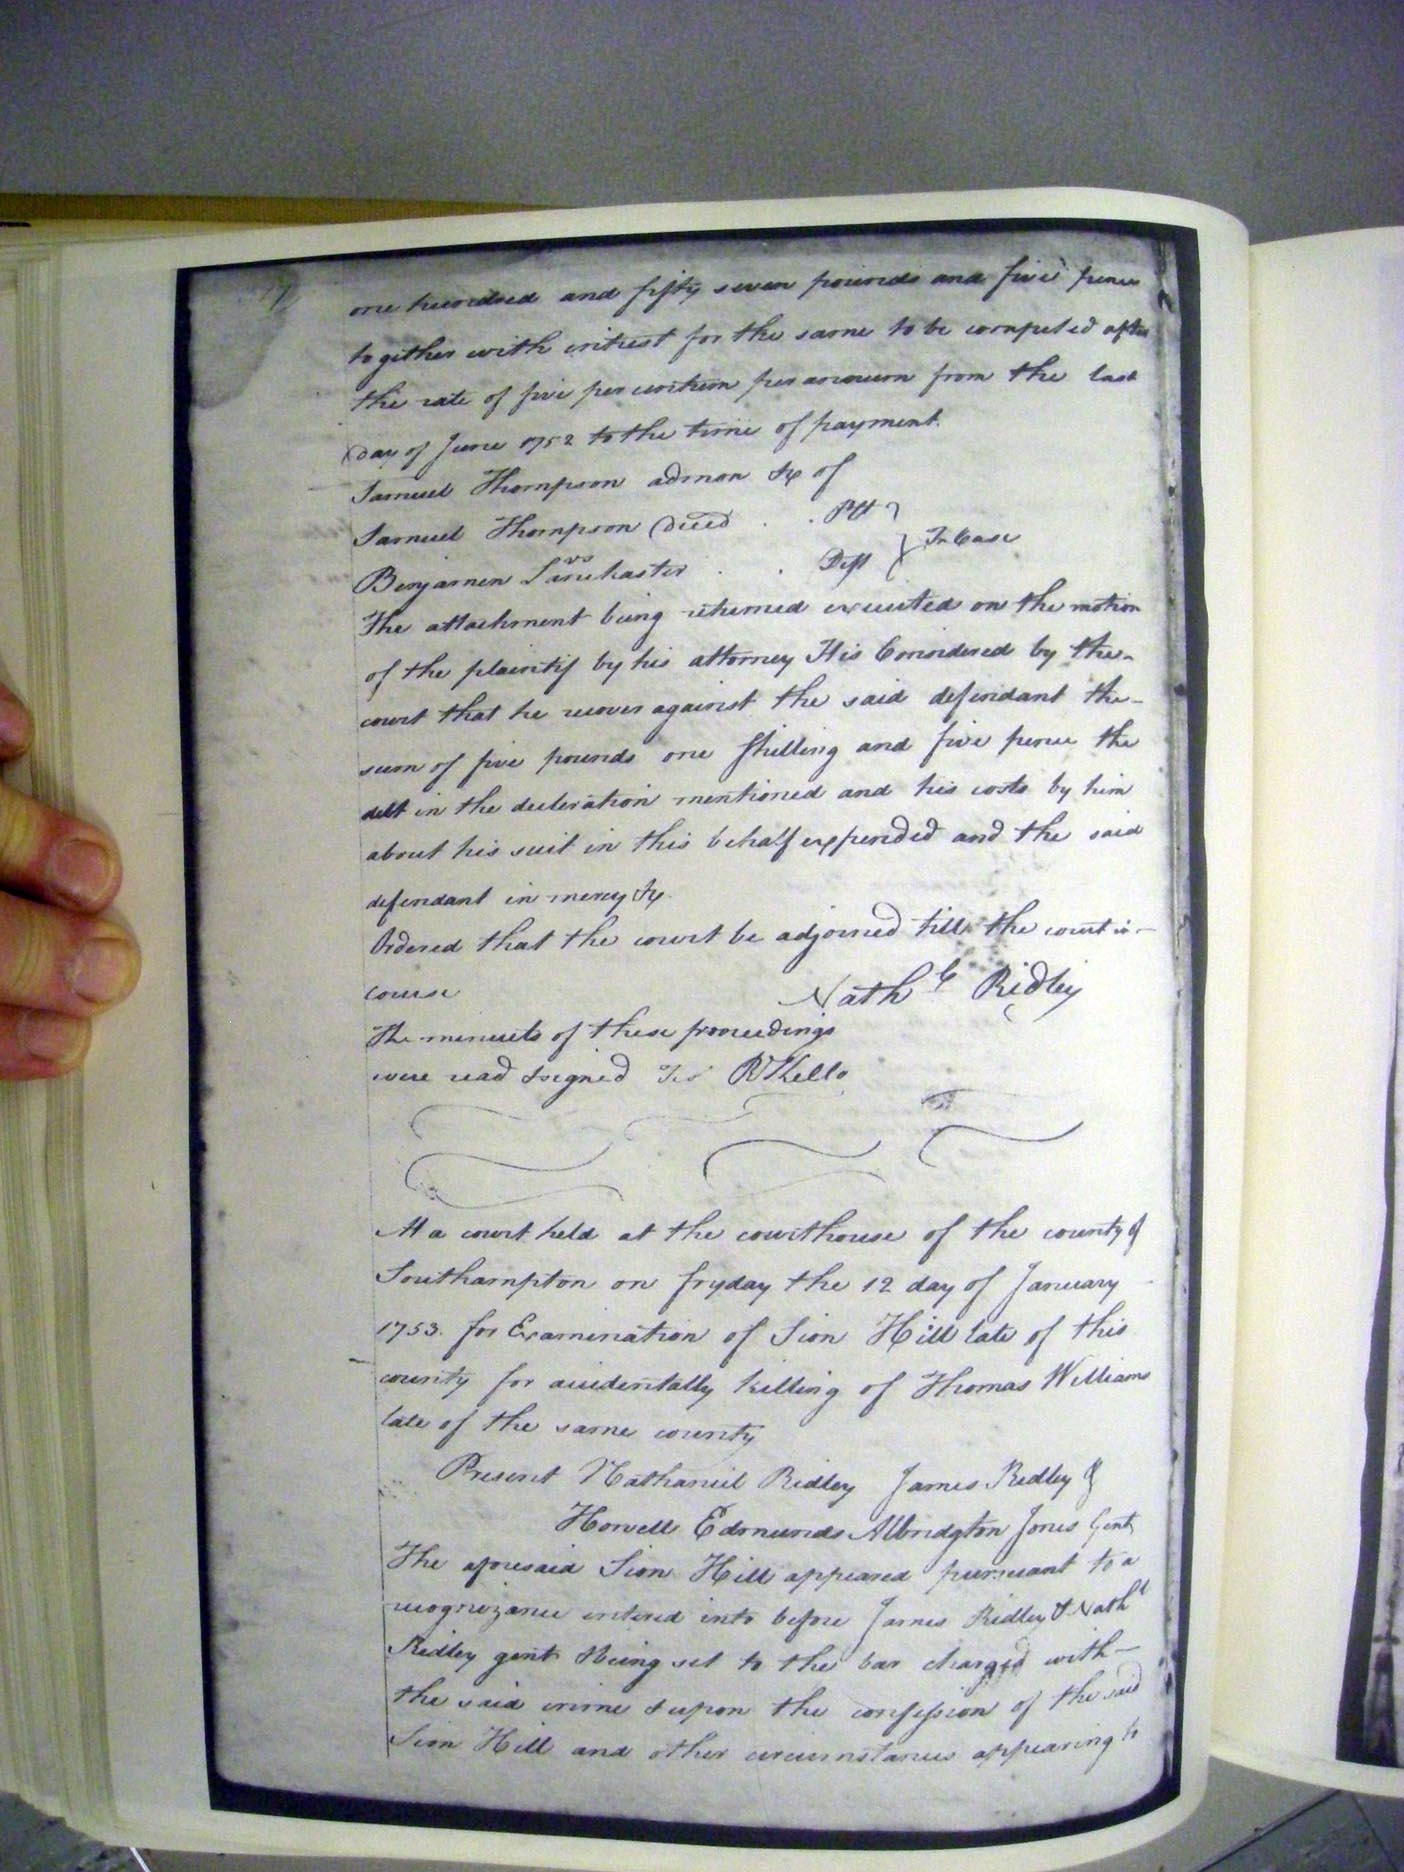 one hundred and fifty seven pounds and five pence
together with intrest for the same to be computed after
the rate of five per centum per annum from the last
day of June 1752 to the time of payment.
Samuel Thompson admon &c of
Samuel Thompson Deced . . Plt } In Case
vs
Benjamen Lanchaster . . Deft
The attachment being returned executed on the motion
of the plaintif by his attorney It is Considered by the
court that he recover against the said defendant the
sum of five pounds one Shilling and five pence the
debt in the decleration mentioned and his costs by him
about his suit in this behalf expended and the said
defendant in mercy &c
Ordered that the court be adjorned till the court in
course
Nathl Ridley
The minuets of these proceedings
were read & signed Test R Kello
At a court held at the courthouse of the county of
Southampton on fryday the 12 day of January
1753. for Examination of Sion Hill late of this
county for accidentally killing of Thomas Williams
late of the same county
Present Nathaniel Ridley James Ridley &
Howell Edmunds Albridgton Jones Gent
The aforesaid Sion Hill appeared pursuant to a
recognizance entered into before James Ridley & Nathl
Ridley gent & being set to the bar charged with
the said crime & upon the confession of the said
Sion Hill and other circumstances appearing to